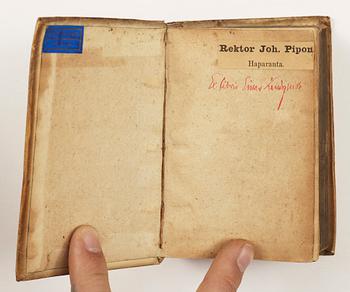 Rektor Joh. Pipon
Haparanta.
Ex libris Einar